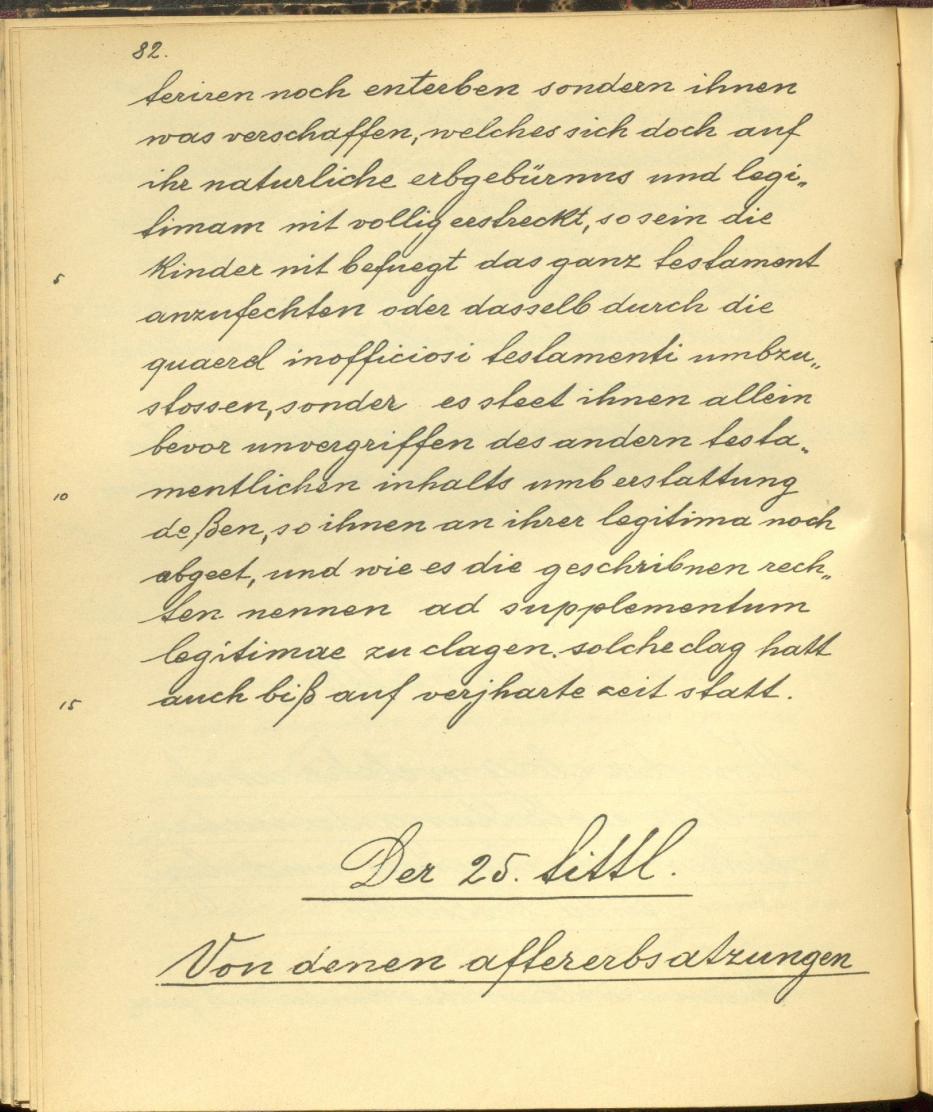 82.
teriren noch enterben sondern ihnen
was verschaffen, welches sich doch auf
ihr naturliche erbgebürnus und legi„
timam nit vollig erstreckt, so sein die
5 kinder nit befuegt das ganz testament
anzufechten oder dasselb durch die
quaerel inofficiosi testamenti umbzu„
stossen, sonder es steet ihnen allein
bevor unvergriffen des andern testa„
10 mentlichen inhalts umb erstattung
deßen, so ihnen an ihrer legitima noch
abgeet, und wie es die geschribnen rech„
ten nennen ad supplementum
legitimae zu clagen. solche clag hatt
15 auch biß auf verjharte zeit statt.
Der 25. tittl.
Von denen aftererbsatzungen